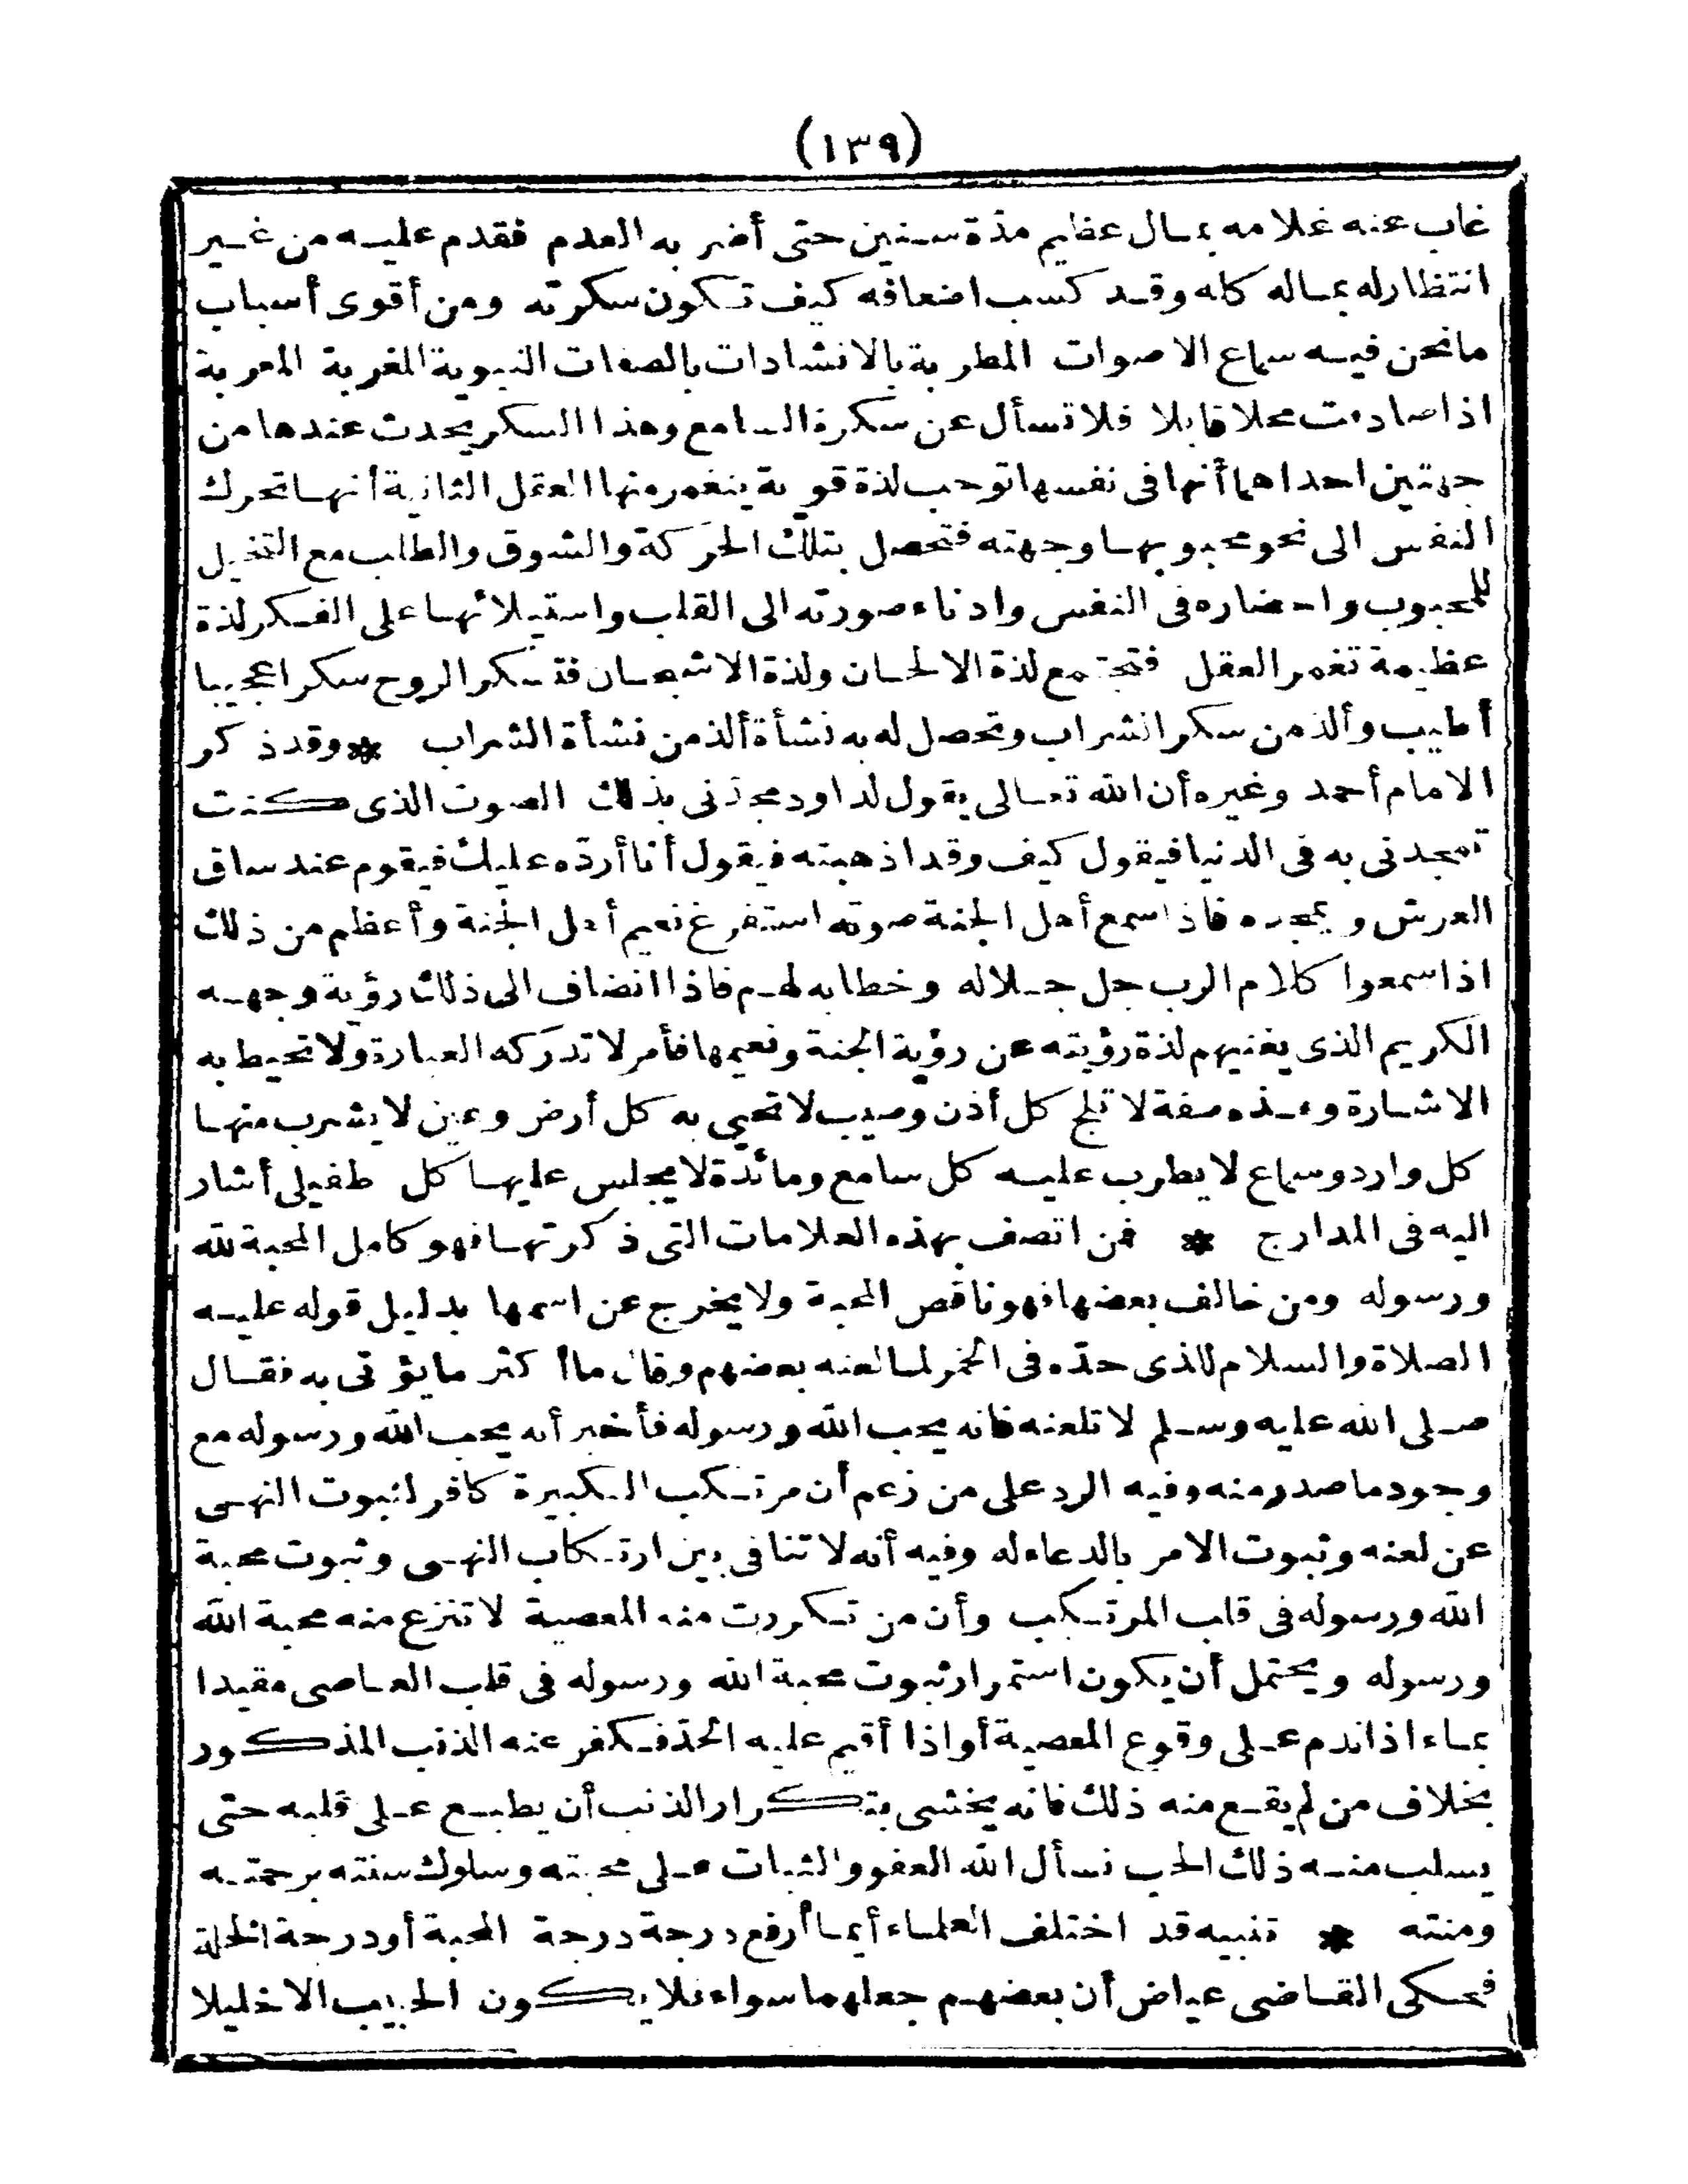 (١٣٩)
غاب عنه غلامه بمال عظيم مدّة سنين حتى أضر به العدم فقدم عليه من غير
انتظار له بماله كله وقد كسب اضعافه كيف تكون سكرته ومن أقوى أسباب
ما نحن فيه سماع الاصوات المطربة بالانشادات بالصفات النبوية المغربة المعربة
اذا صادفت محلا قابلا فلا تسأل عن سكرة السامع وهذا السكر يحدث عندها من
جهتين احداهما أنها فى نفسها توجب لذة قوية ينغمر منها العقل الثانية أنها تحرك
النفس الى نحو محبوبها وجهته فتحصل بتلك الحركة والشوق والطلب مع التخيل
للمحبوب واحضاره فى النفس وادناء صورته الى القلب واستيلائها على الفكر لذة
عظيمة تغمر العقل فتجتمع لذة الالحان ولذة الاشجان فتسكر الروح سكرا عجيبا
أطيب وألذ من سكر الشراب وتحصل له به نشأة ألذ من نشأة الشراب * وقد ذكر
الامام أحمد وغيره أن الله تعالى يقول لداود مجدنى بذلك الصوت الذى كنت
تمجدنى به فى الدنيا فيقول كيف وقد اذهبته فيقول أنا أردّه عليك فيقوم عند ساق
العرش ويمجده فاذا سمع أهل الجنة صوته استفرغ نعيم أهل الجنة وأعظم من ذلك
اذا سمعوا كلام الرب جل جلاله وخطابه لهم فاذا انضاف الى ذلك رؤية وجهه
الكريم الذى يغنيهم لذة رؤيته عن رؤية الجنة ونعيمها فأمر لا تدركه العبارة ولا تحيط به
الاشارة وهذه صفة لا تلج كل أذن وصيب لا تحيى به كل أرض وعين لا يشرب منها
كل وارد وسماع لا يطرب عليه كل سامع ومائدة لا يجلس عليها كل طفيلى أشار
اليه فى المدارج * فمن اتصف بهذه العلامات التى ذكرتها فهو كامل المحبة لله
ورسوله ومن خالف بعضها فهو ناقص المحبة ولا يخرج عن اسمها بدليل قوله عليه
الصلاة والسلام للذى حدّه فى الخمر لما لعنه بعضهم وقال ما أكثر ما يؤتى به فقال
صلى الله عليه وسلم لا تلعنه فانه يحب الله ورسوله فأخبر أنه يحب الله ورسوله مع
وجود ما صدر منه وفيه الرد على من زعم أن مرتكب الكبيرة كافر لثبوت النهى
عن لعنه وثبوت الامر بالدعاء له وفيه أنه لا تنافى بين ارتكاب النهى وثبوت محبة
الله ورسوله فى قلب المرتكب وأن من تكررت منه المعصية لا تنزع منه محبة الله
ورسوله ويحتمل أن يكون استمرار ثبوت محبة الله ورسوله فى قلب العاصى مقيدا
بماء اذا ندم على وقوع المعصية أو اذا أقيم عليه الحدّ فكفر عنه الذنب المذكور
بخلاف من لم يقع منه ذلك فانه يخشى بتكرار الذنب أن يطبع على قلبه حتى
يسلب منه ذلك الحب نسأل الله العفو والثبات على محبته وسلوك سنته برحمته
ومنته * تنبيه قد اختلف العلماء أيما أرفع درجة درجة المحبة أو درجة الخلة
فحكى القاضى عياض أن بعضهم جعلهما سواء فلا يكون الحبيب الا خليلا